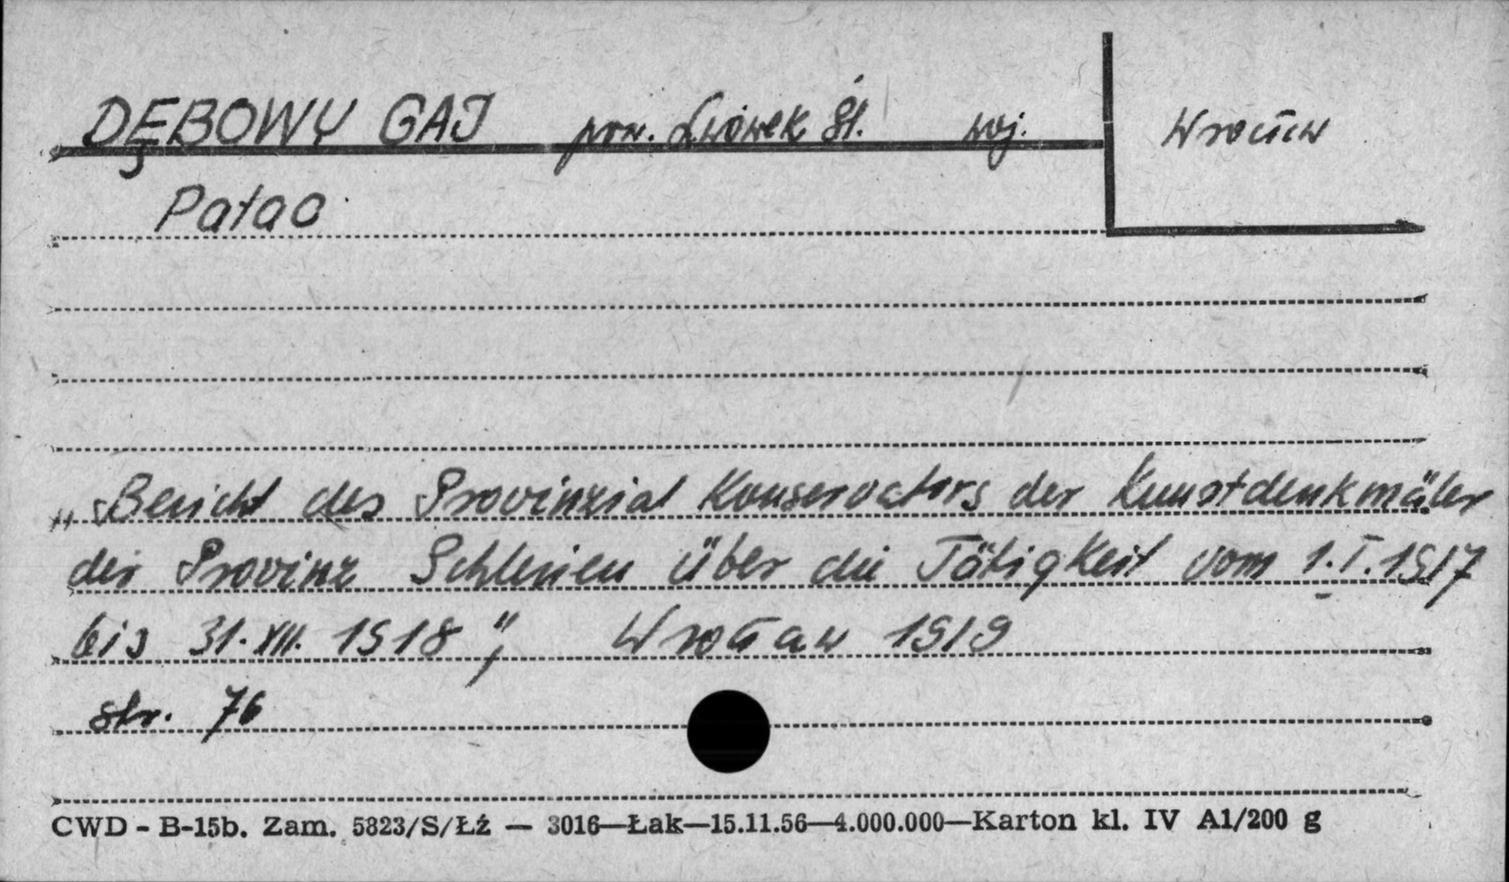 DĘBOWY GAJ pow. Lwówek Śl. woj. Wrocław
Pałac
„Bericht des Provinzial Konservators der Kunstdenkmäler
der Provinz Schlesien über die Tätigkeit vom 1.I.1917
bis 31.XII.1918", Wrocław 1919
str. 76
CWD - B-15b. Zam. 5823/S/Łź — 3016—Łak—15.11.56—4.000.000—Karton kl. IV A1/200 g